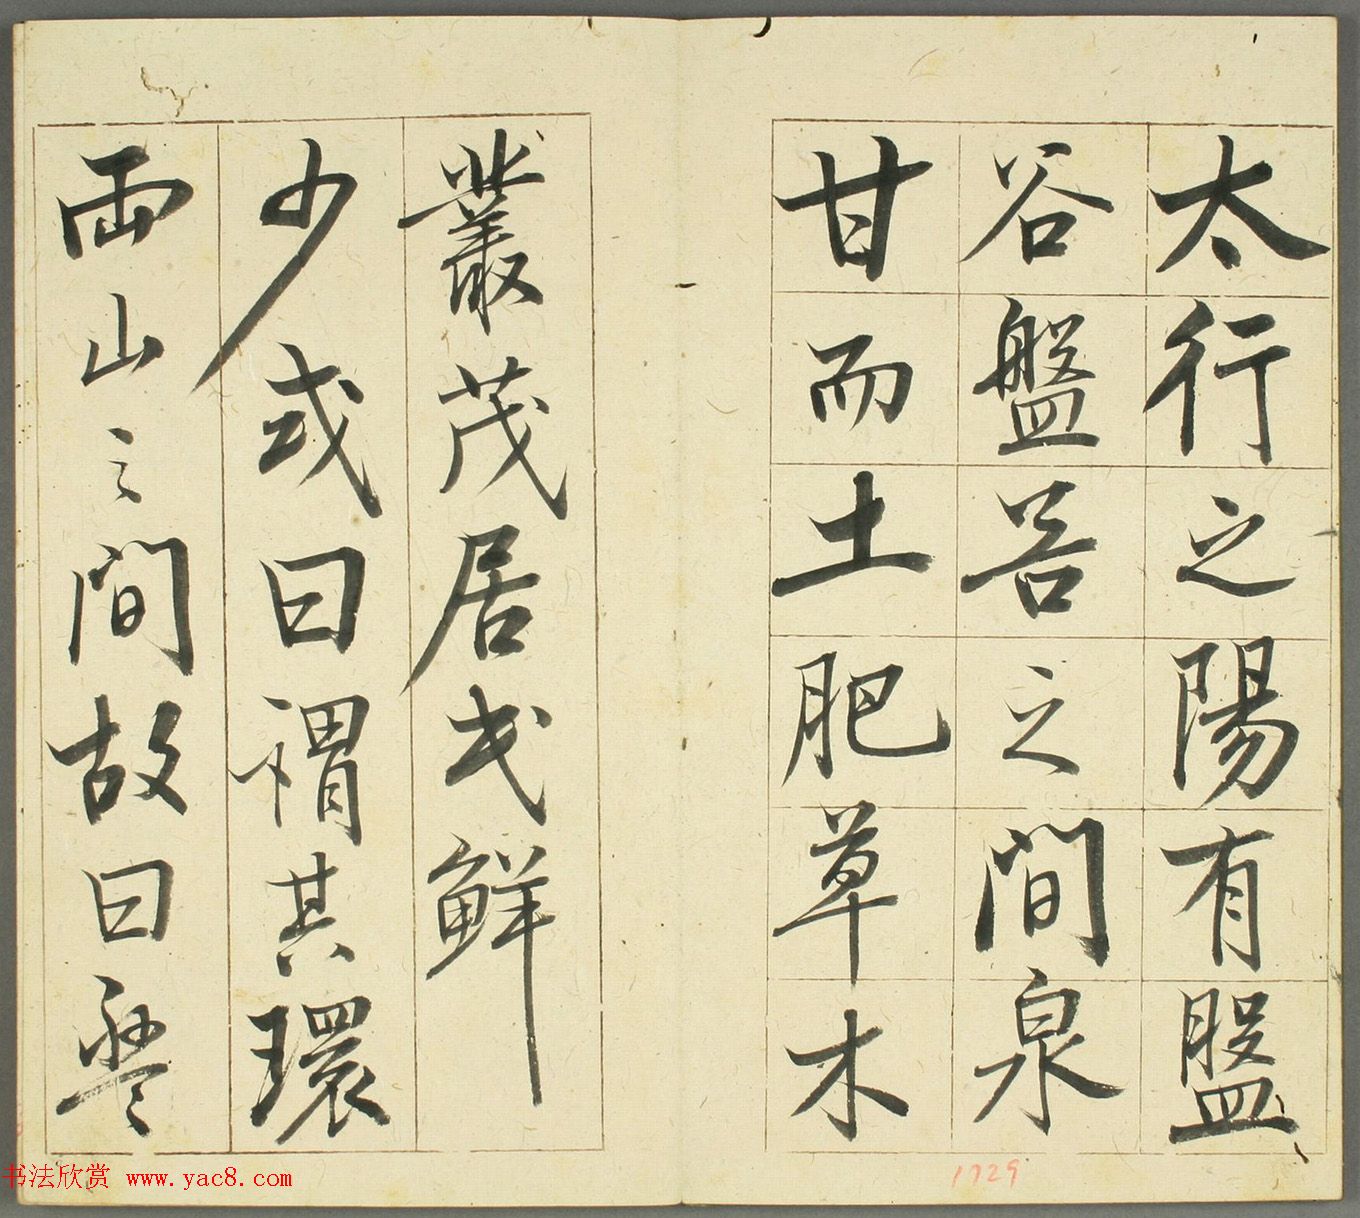 太行之陽有盤
谷盤谷之間泉
甘而土肥草木
叢茂居民鮮
少或曰謂其環
兩山之間故曰盤
1729
书法欣赏 www.yac8.com